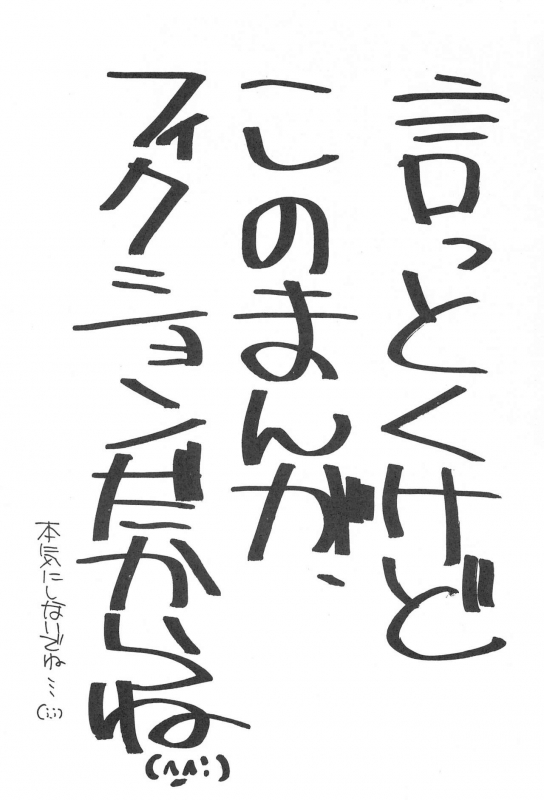 言っとくけど
このまんが、
フィクションだからね
(^^;)
本気にしないでね…
(;;)